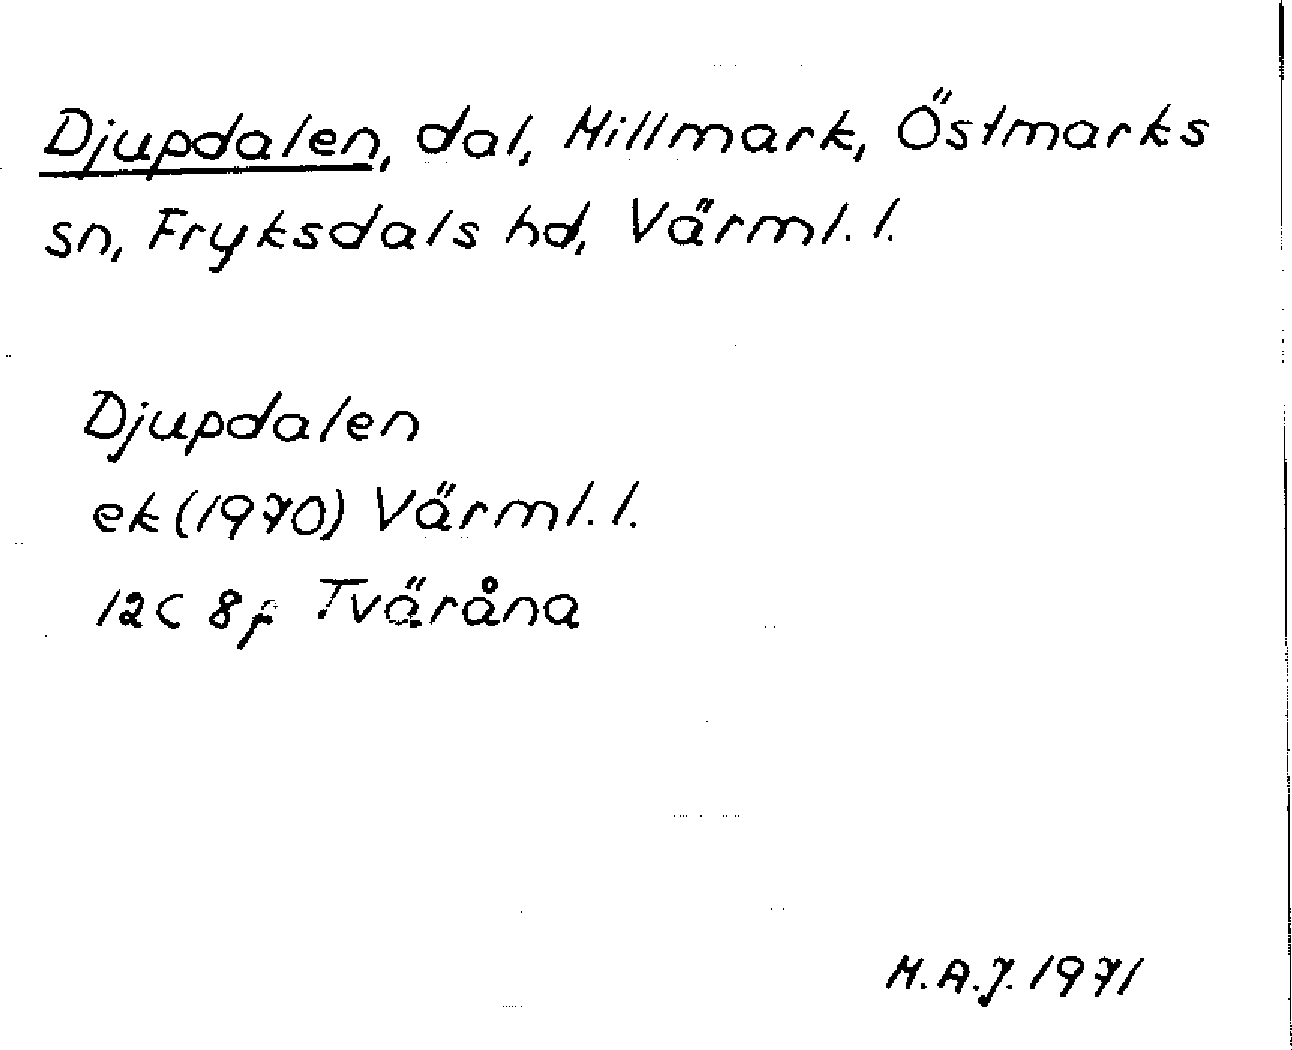 Djupdalen, dal, Hillmark, Östmarks
sn, Fryksdals hd, Värml. l.
Djupdalen
ek (1970) Värml. l.
12C 8f Tväråna
M.A.J. 1971